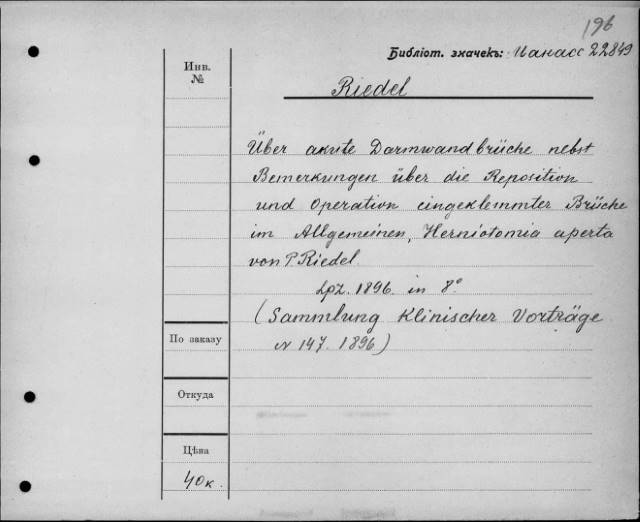 196
Библіот. значекъ: Манасс 22849
Инв.
№
Riedel
Über akute Darmwandbrüche nebst
Bemerkungen über die Reposition
und Operation eingeklemmter Brüche
im Allgemeinen, Herniotomia aperta
von P Riedel.
Lpz. 1896. in 8°
(Sammlung Klinischer Vorträge
N 147. 1896)
По заказу
Откуда
Цѣна
40 к.